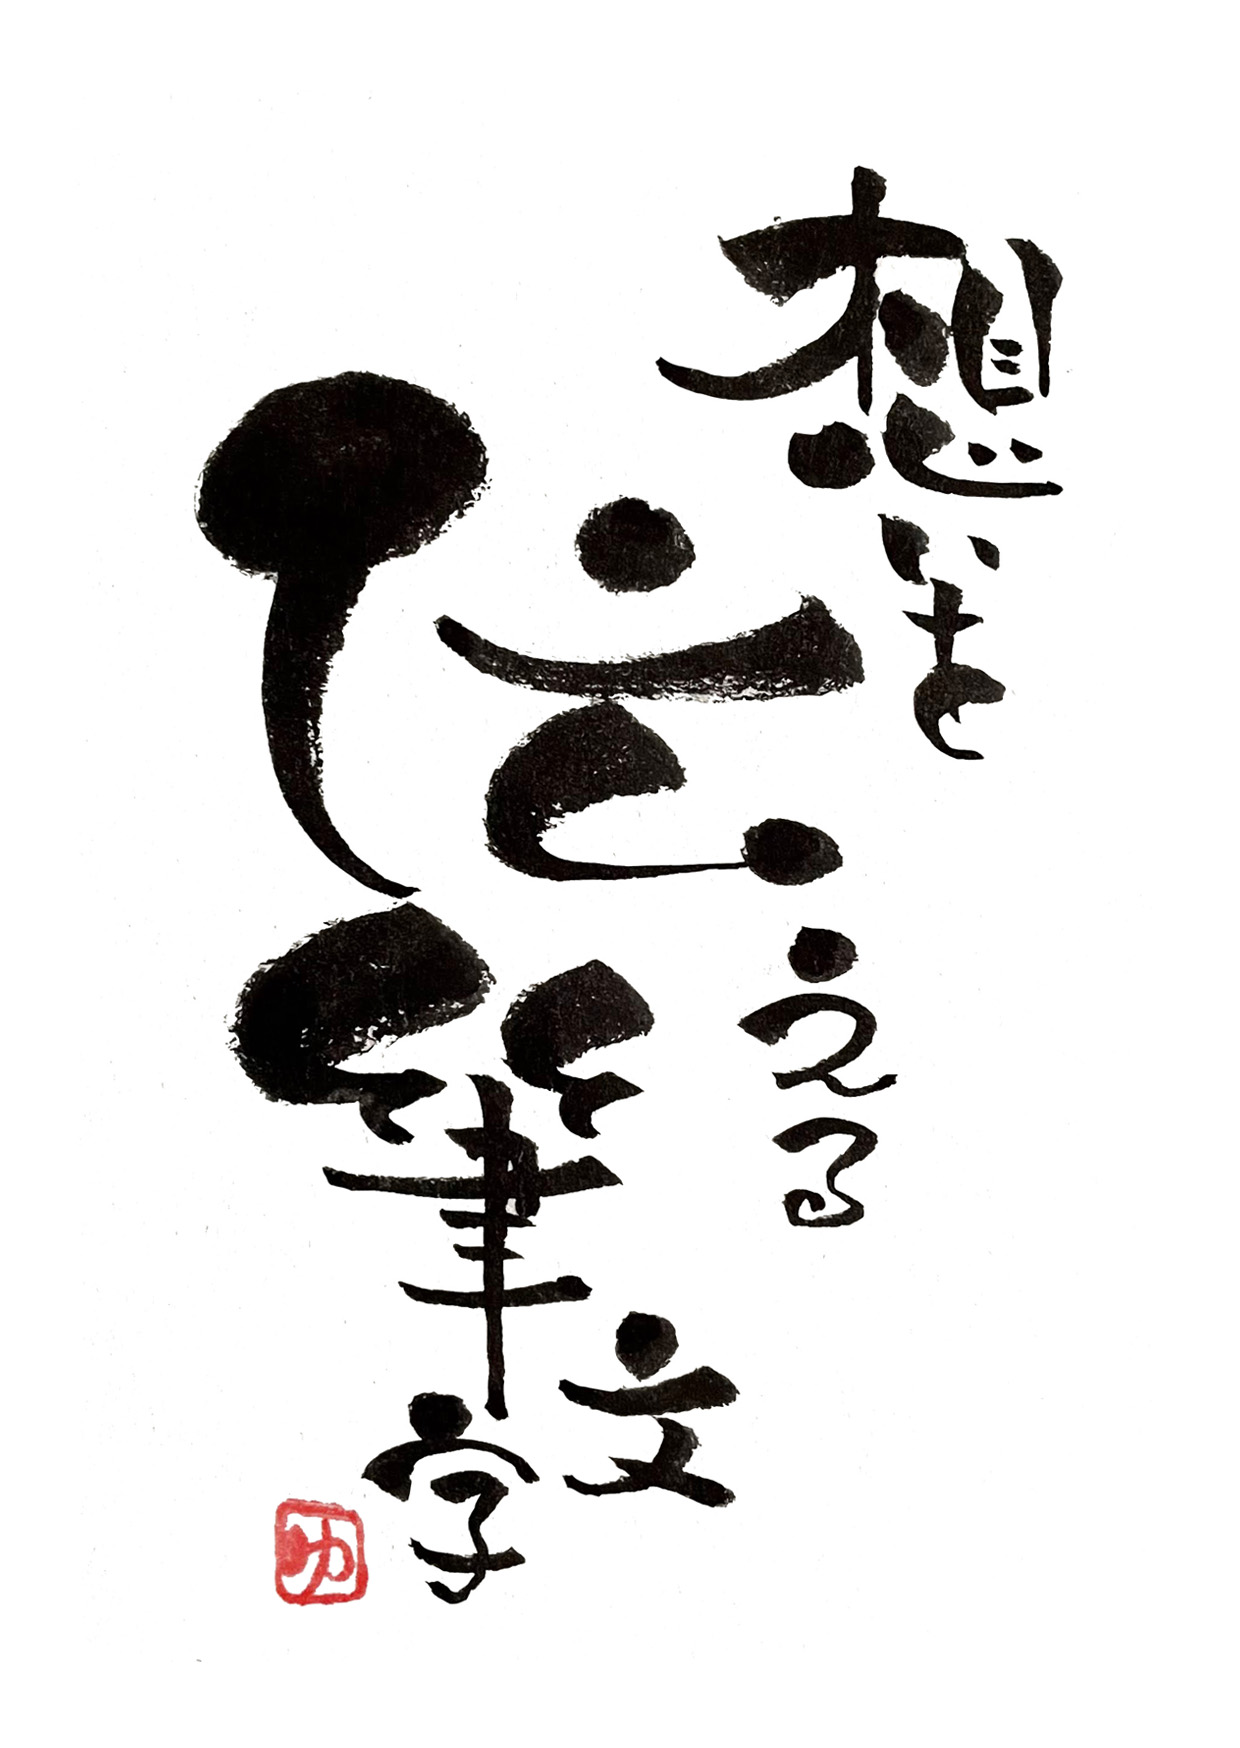 想いを
伝える
筆文字
ゆ